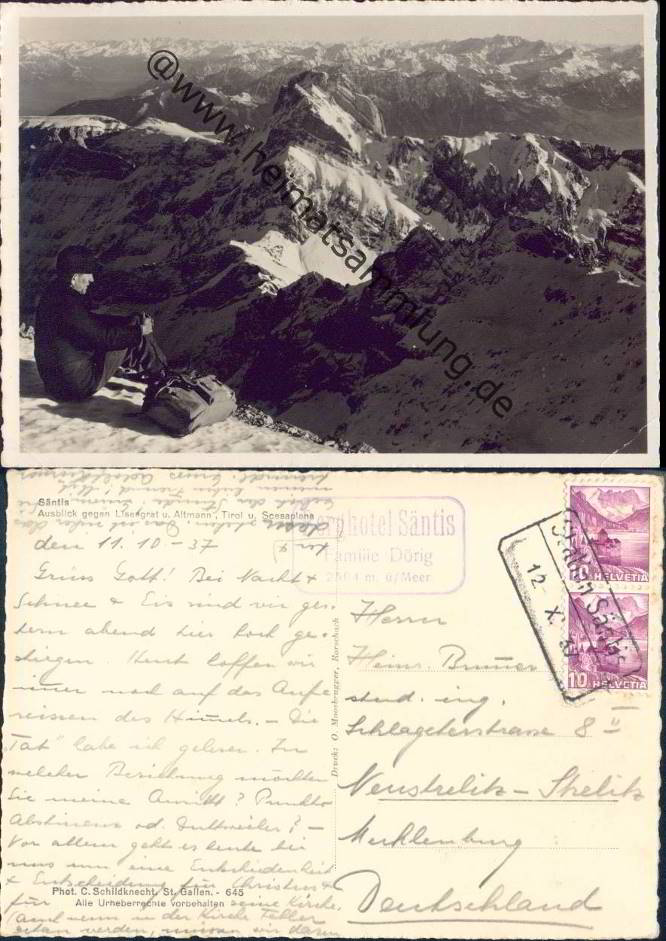 @www.heimatsammlung.de
Säntis
Ausblick gegen Lisengrat u. Altmann, Tirol u. Scesaplana
Berghotel Säntis
Familie Dörig
2504 m. ü/Meer
Station Säntis
12. X. 37
HELVETIA
10 HELVETIA
den 11. 10 - 37
Grüss Gott! Bei Nacht &
Schnee & Eis sind wir ges-
tern abend hier hoch ge-
stiegen. Heut hoffen wir
immer noch auf das Aufr
reissen des Himmels. - Die
"Tat" habe ich gelesen. In
welcher Beziehung möchten
Sie meine Ansicht? Punkto
Abstinenz od. Duttweiler? -
Vor allem geht es heute bei
uns um eine Entschiedenheit
& Entscheidung für Christus &
für seine Kirche.
(Auch wenn in der Kirche Fehler
getan werden, müssen wir darum
Phot. C. Schildknecht, St. Gallen. - 645
Alle Urheberrechte vorbehalten
Druck: O. Moosbrugger, Rorschach
Herrn
Heinr.
stud. ing.
Schlageterstrasse 8 II
Neustrelitz - Strelitz
Mecklenburg
Deutschland